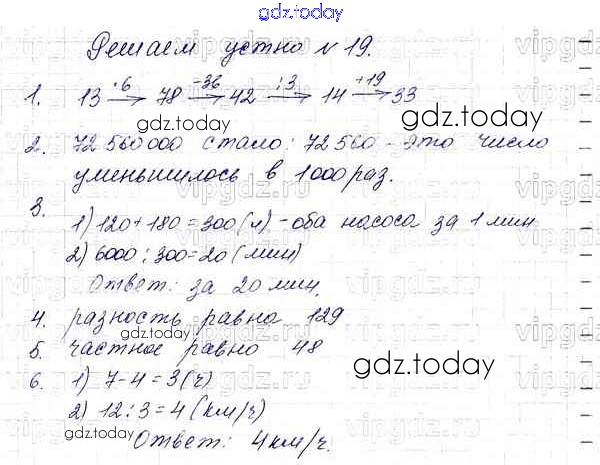 gdz.today
Решаем устно № 19.
1. 13 ·6→ 78 -36→ 42 :3→ 14 +19→ 33
gdz.today
2. 72 560 000 стало: 72 560 - это число
уменьшилось в 1000 раз.
3.
1) 120+180=300(л) - оба насоса за 1 мин
2) 6000:300=20(мин)
Ответ: за 20 мин.
4. разность равна 129
gdz.today
5. частное равно 48
gdz.today
6. 1) 7-4=3(ч)
2) 12:3=4(км/ч)
gdz.today
Ответ: 4км/ч.